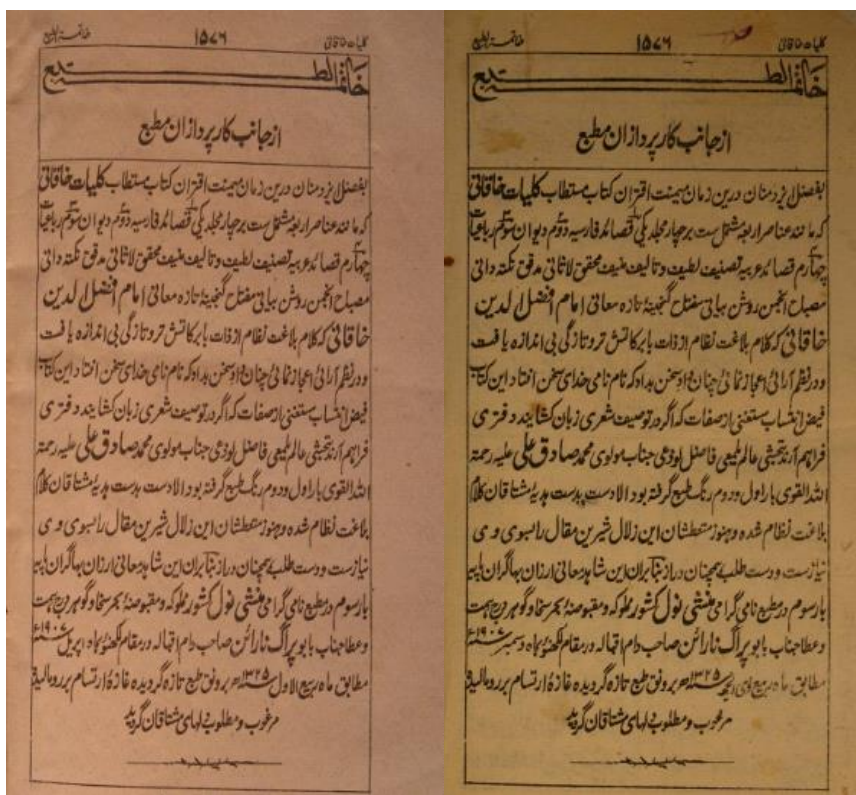 خاتمۃ الطبع
۱۵۷۶
کلیات خاقانی
خاتمۃ الطبع
از جانب کارپردازان مطبع
بفضل ایزد منان درین زمان میمنت اقتران کتاب مستطاب کلیات خاقانی
که مانند عناصر اربعه مشتمل ست بر چهار مجلد یکی قصائد فارسیه دوم دیوان سوم رباعیات
چهارم قصائد عربیه تصنیف لطیف و تالیف منیف محقق لاثانی مدقق نکته دانی
مصباح انجمن روشن بیانی مفتاح گنجینهٔ تازه معانی امام افضل الدین
خاقانی که کلام بلاغت نظام از ذات بابرکاتش تر و تازگی بی اندازه یافت
و در نظم آرائی اعجاز نمائی چنان داد سخن بداد که نام نامی خدای سخن افتاد این کتاب
فیض انتساب مستغنی از صفات که اگر در توصیف شعری زبان کشایند دفتری
فراهم آرند بتحشی عالم یلمعی فاضل لوذعی جناب مولوی محمد صادق علی علیه رحمة
الله القوی بار اول و دوم رنگ طبع گرفته بود الا دست بدست هدیهٔ مشتاقان کلام
بلاغت نظام شده و هنوز متعطشان این زلال شیرین مقال را بسوی وی
نیاز ست و دست طلب همچنان دراز بنابران این شاهد معانی ارزان بهاگران پایه
بار سوم در مطبع نامی گرامی منشی نول کشور مملوکه و مقبوضهٔ بحر سخا و گوهر درج همت
و عطا جناب بابو پراگ نارائن صاحب دام اقباله در مقام لکهنؤ بماه اپریل سنه ۱۹۰۷ء
مطابق ماه ربیع الاول سنه ۱۳۲۵ھ برونق طبع تازه گردیده غازهٔ ارتسام بر رو مالیده
مرغوب و مطلوب دلهای مشتاقان گردید
خاتمۃ الطبع
۱۵۷۶
کلیات خاقانی
خاتمۃ الطبع
از جانب کارپردازان مطبع
بفضل ایزد منان درین زمان میمنت اقتران کتاب مستطاب کلیات خاقانی
که مانند عناصر اربعه مشتمل ست بر چهار مجلد یکی قصائد فارسیه دوم دیوان سوم رباعیات
چهارم قصائد عربیه تصنیف لطیف و تالیف منیف محقق لاثانی مدقق نکته دانی
مصباح انجمن روشن بیانی مفتاح گنجینهٔ تازه معانی امام افضل الدین
خاقانی که کلام بلاغت نظام از ذات بابرکاتش تر و تازگی بی اندازه یافت
و در نظم آرائی اعجاز نمائی چنان داد سخن بداد که نام نامی خدای سخن افتاد این کتاب
فیض انتساب مستغنی از صفات که اگر در توصیف شعری زبان کشایند دفتری
فراهم آرند بتحشی عالم یلمعی فاضل لوذعی جناب مولوی محمد صادق علی علیه رحمة
الله القوی بار اول و دوم رنگ طبع گرفته بود الا دست بدست هدیهٔ مشتاقان کلام
بلاغت نظام شده و هنوز متعطشان این زلال شیرین مقال را بسوی وی
نیاز ست و دست طلب همچنان دراز بنابران این شاهد معانی ارزان بهاگران پایه
بار سوم در مطبع نامی گرامی منشی نول کشور مملوکه و مقبوضهٔ بحر سخا و گوهر درج همت
و عطا جناب بابو پراگ نارائن صاحب دام اقباله در مقام لکهنؤ بماه دسمبر سنه ۱۹۰۷ء
مطابق ماه ذی سنه ۱۳۲۵ھ برونق طبع تازه گردیده غازهٔ ارتسام بر رو مالیده
مرغوب و مطلوب دلهای مشتاقان گردید